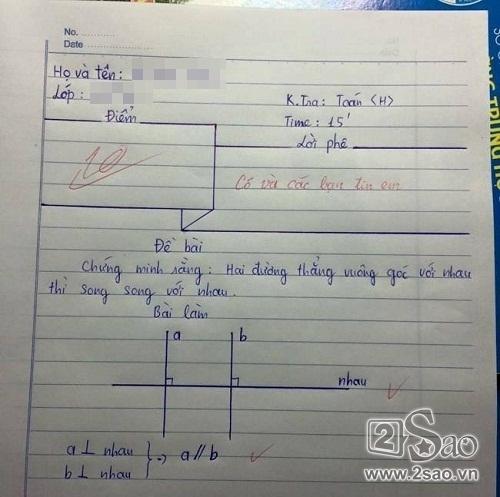 No.
Date
Họ và tên:
Lớp:
K.Tra: Toán <H>
Time: 15'
Điểm
Lời phê
10
Cô và các bạn tin em
Đề bài
Chứng minh rằng: Hai đường thẳng vuông góc với nhau
thì song song với nhau.
Bài làm
a
b
nhau
a ⊥ nhau
b ⊥ nhau
} => a // b
2Sao
www.2sao.vn